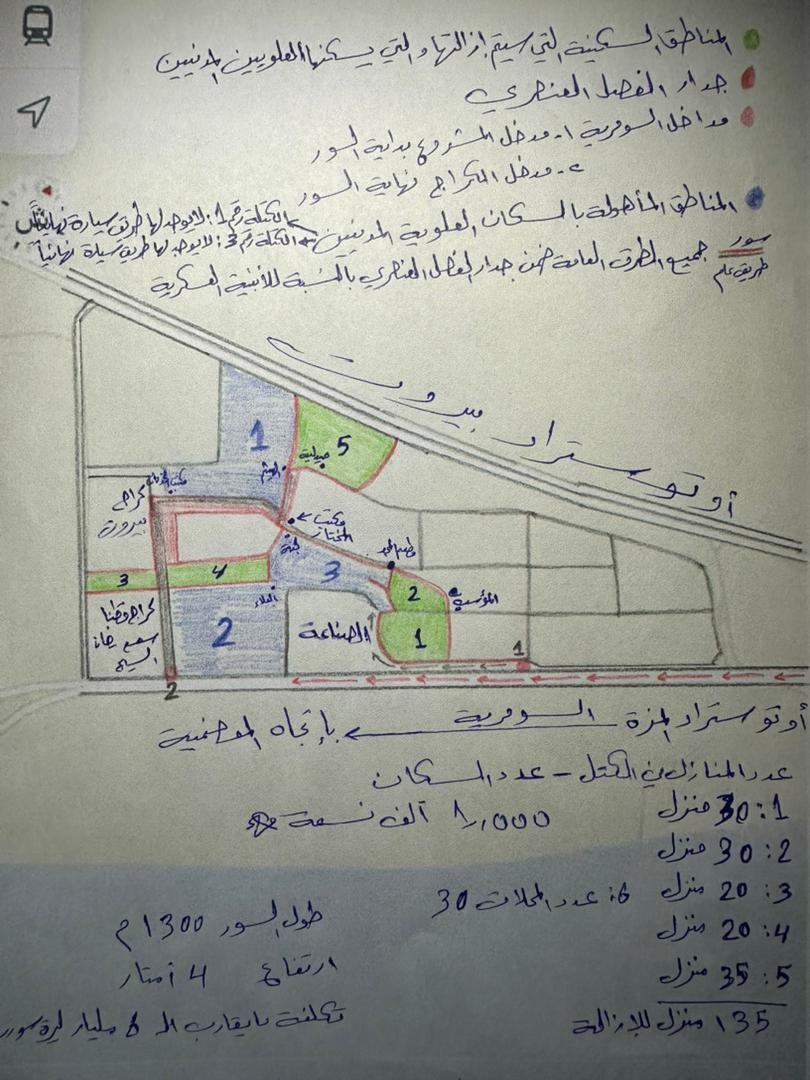 المناطق السكنية التي سيتم ازالتها والتي يسكنها العلويين المدنيين
جدار الفصل العنصري
مداخل السومرية 1- مدخل المشروع بداية السور
2- مدخل الكراج نهاية السور
المناطق المأهولة بالسكان العلوية المدنيين
الكتلة رقم 1: لا يوجد لها طريق سيارة نهائياً
الكتلة رقم 3: لا يوجد لها طريق سيارة نهائياً
سور
طريق عام
جميع الطرق العامة ضمن جدار الفصل العنصري بالنسبة للأبنية العسكرية
أوتوستراد بيروت
1
5
صيدلية
كراج بيروت
مكتب
المختار
3
4
3
2
المؤسسة
كراج قطنا
2
الصناعة
1
1
2
أوتوستراد المزة السومرية بإتجاه المعضمية
عدد المنازل في الكتل - عدد السكان
1: 30 منزل
8,000 آلف نسمة
2: 30 منزل
3: 20 منزل
6: عدد المحلات 30
4: 20 منزل
5: 35 منزل
135 منزل للإزالة
طول السور 1300 م
ارتفاع 4 أمتار
تكلفة ما يقارب الـ 6 مليار ليرة سور